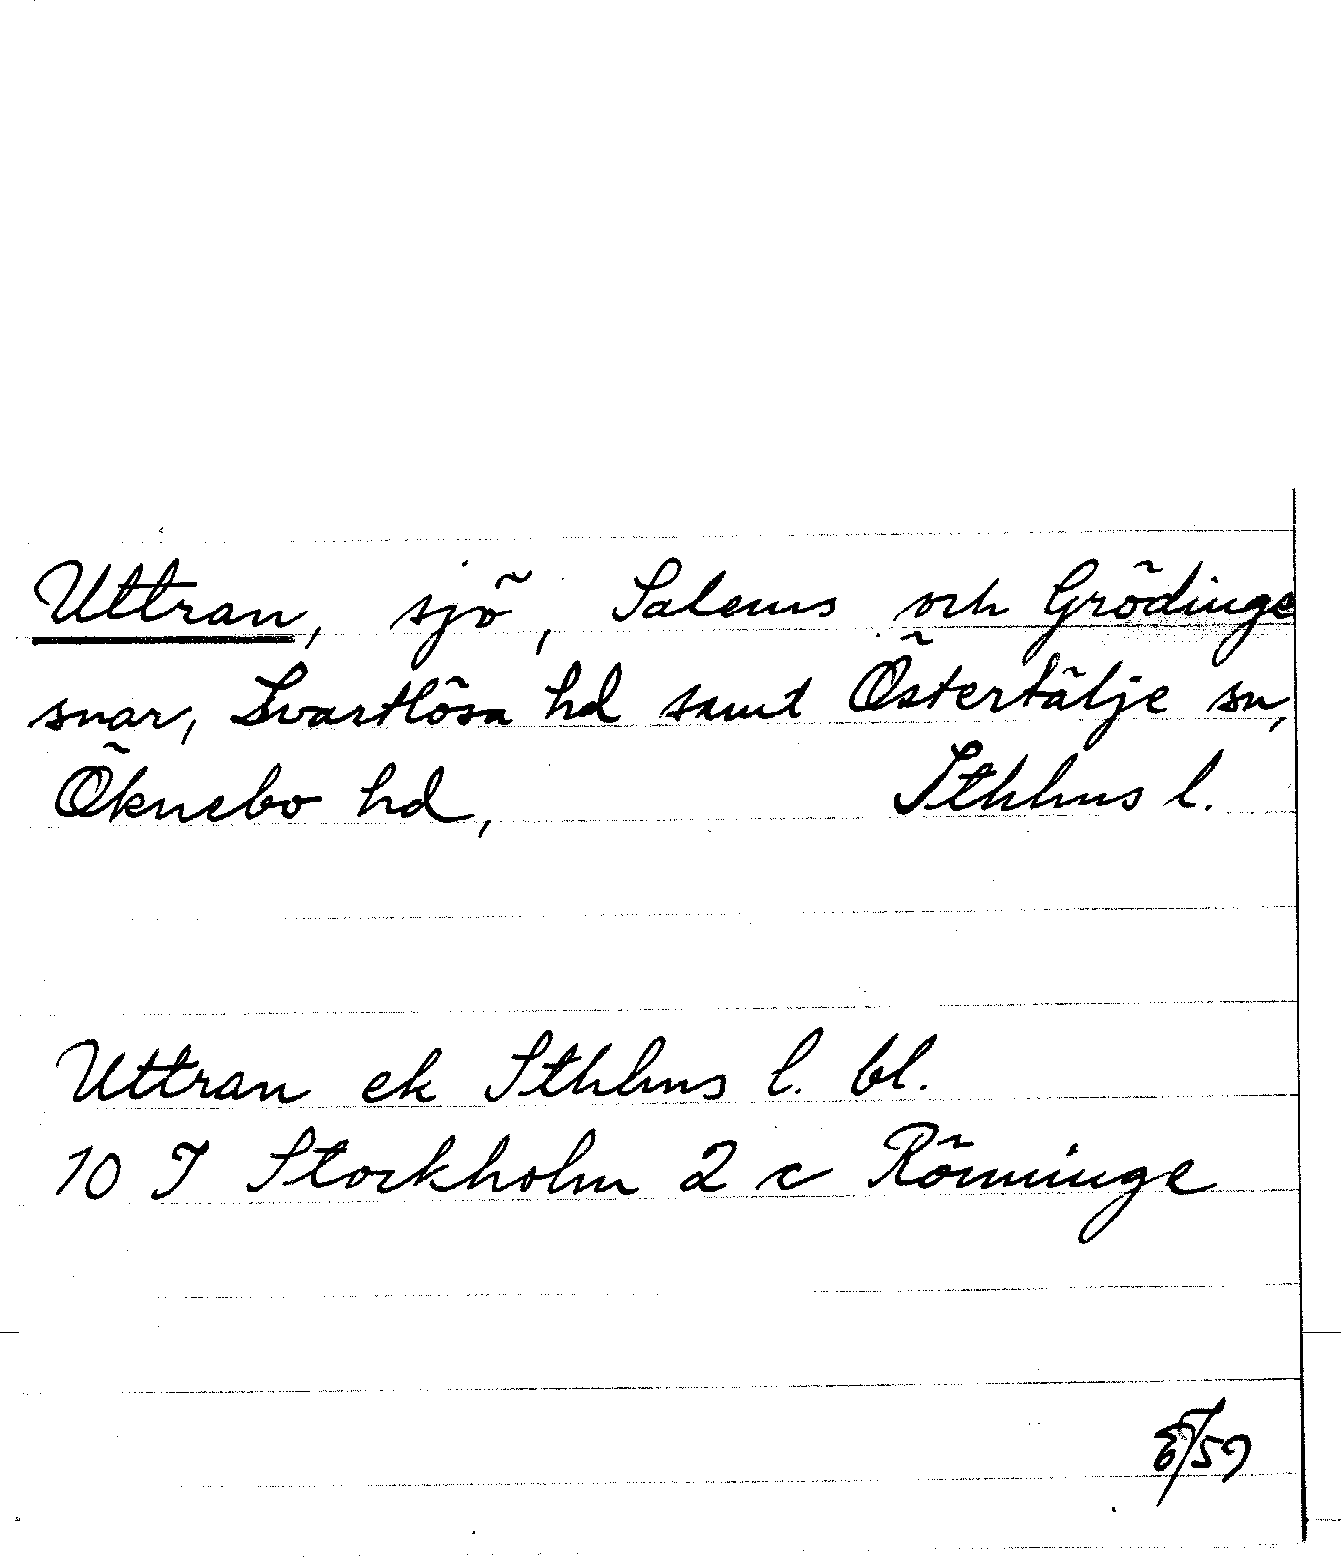 Uttran, sjö, Salems och Grödinge
snar, Svartlösa hd samt Östertälje sn,
Öknebo hd, Sthlms l.
Uttran ek Sthlms l. bl.
10 I Stockholm 2 c Rönninge
/59